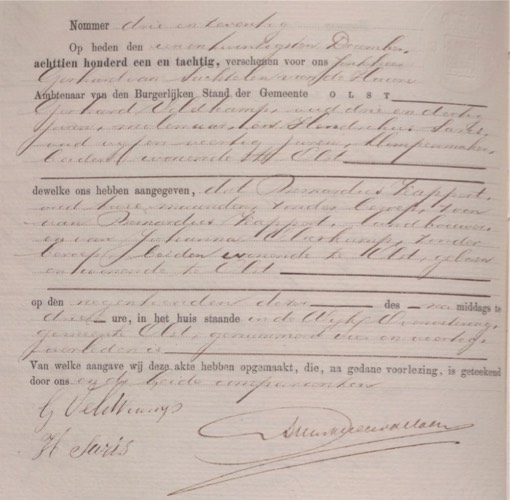 Nommer drie en zeventig
Op heden den een en twintigsten December
achttien honderd een en tachtig, verschenen voor ons
Gerhard van Suchtelen van de Haere
Ambtenaar van den Burgerlijken Stand der Gemeente OLST
Gerhard Veldkamp, oud drie en dertig
jaren, molenaar, en Hendricus Saris,
oud vijf en veertig jaren, klompenmaker,
beiden wonende te Olst
dewelke ons hebben aangegeven, dat Bernardus Kappert,
oud twee maanden, zonder beroep, zoon
van Bernardus Kappert, landbouwer,
en van Johanna, zonder
beroep, beiden wonende te Olst, geboren
en wonende te Olst
op den negentienden dezer des na middags te
drie ure, in het huis staande in de Wijk
gemeente Olst, genummerd vier en veertig,
overleden is
Van welke aangave wij deze akte hebben opgemaakt, die, na gedane voorlezing, is geteekend
door ons en de beide comparanten
G Veldkamp
H Saris